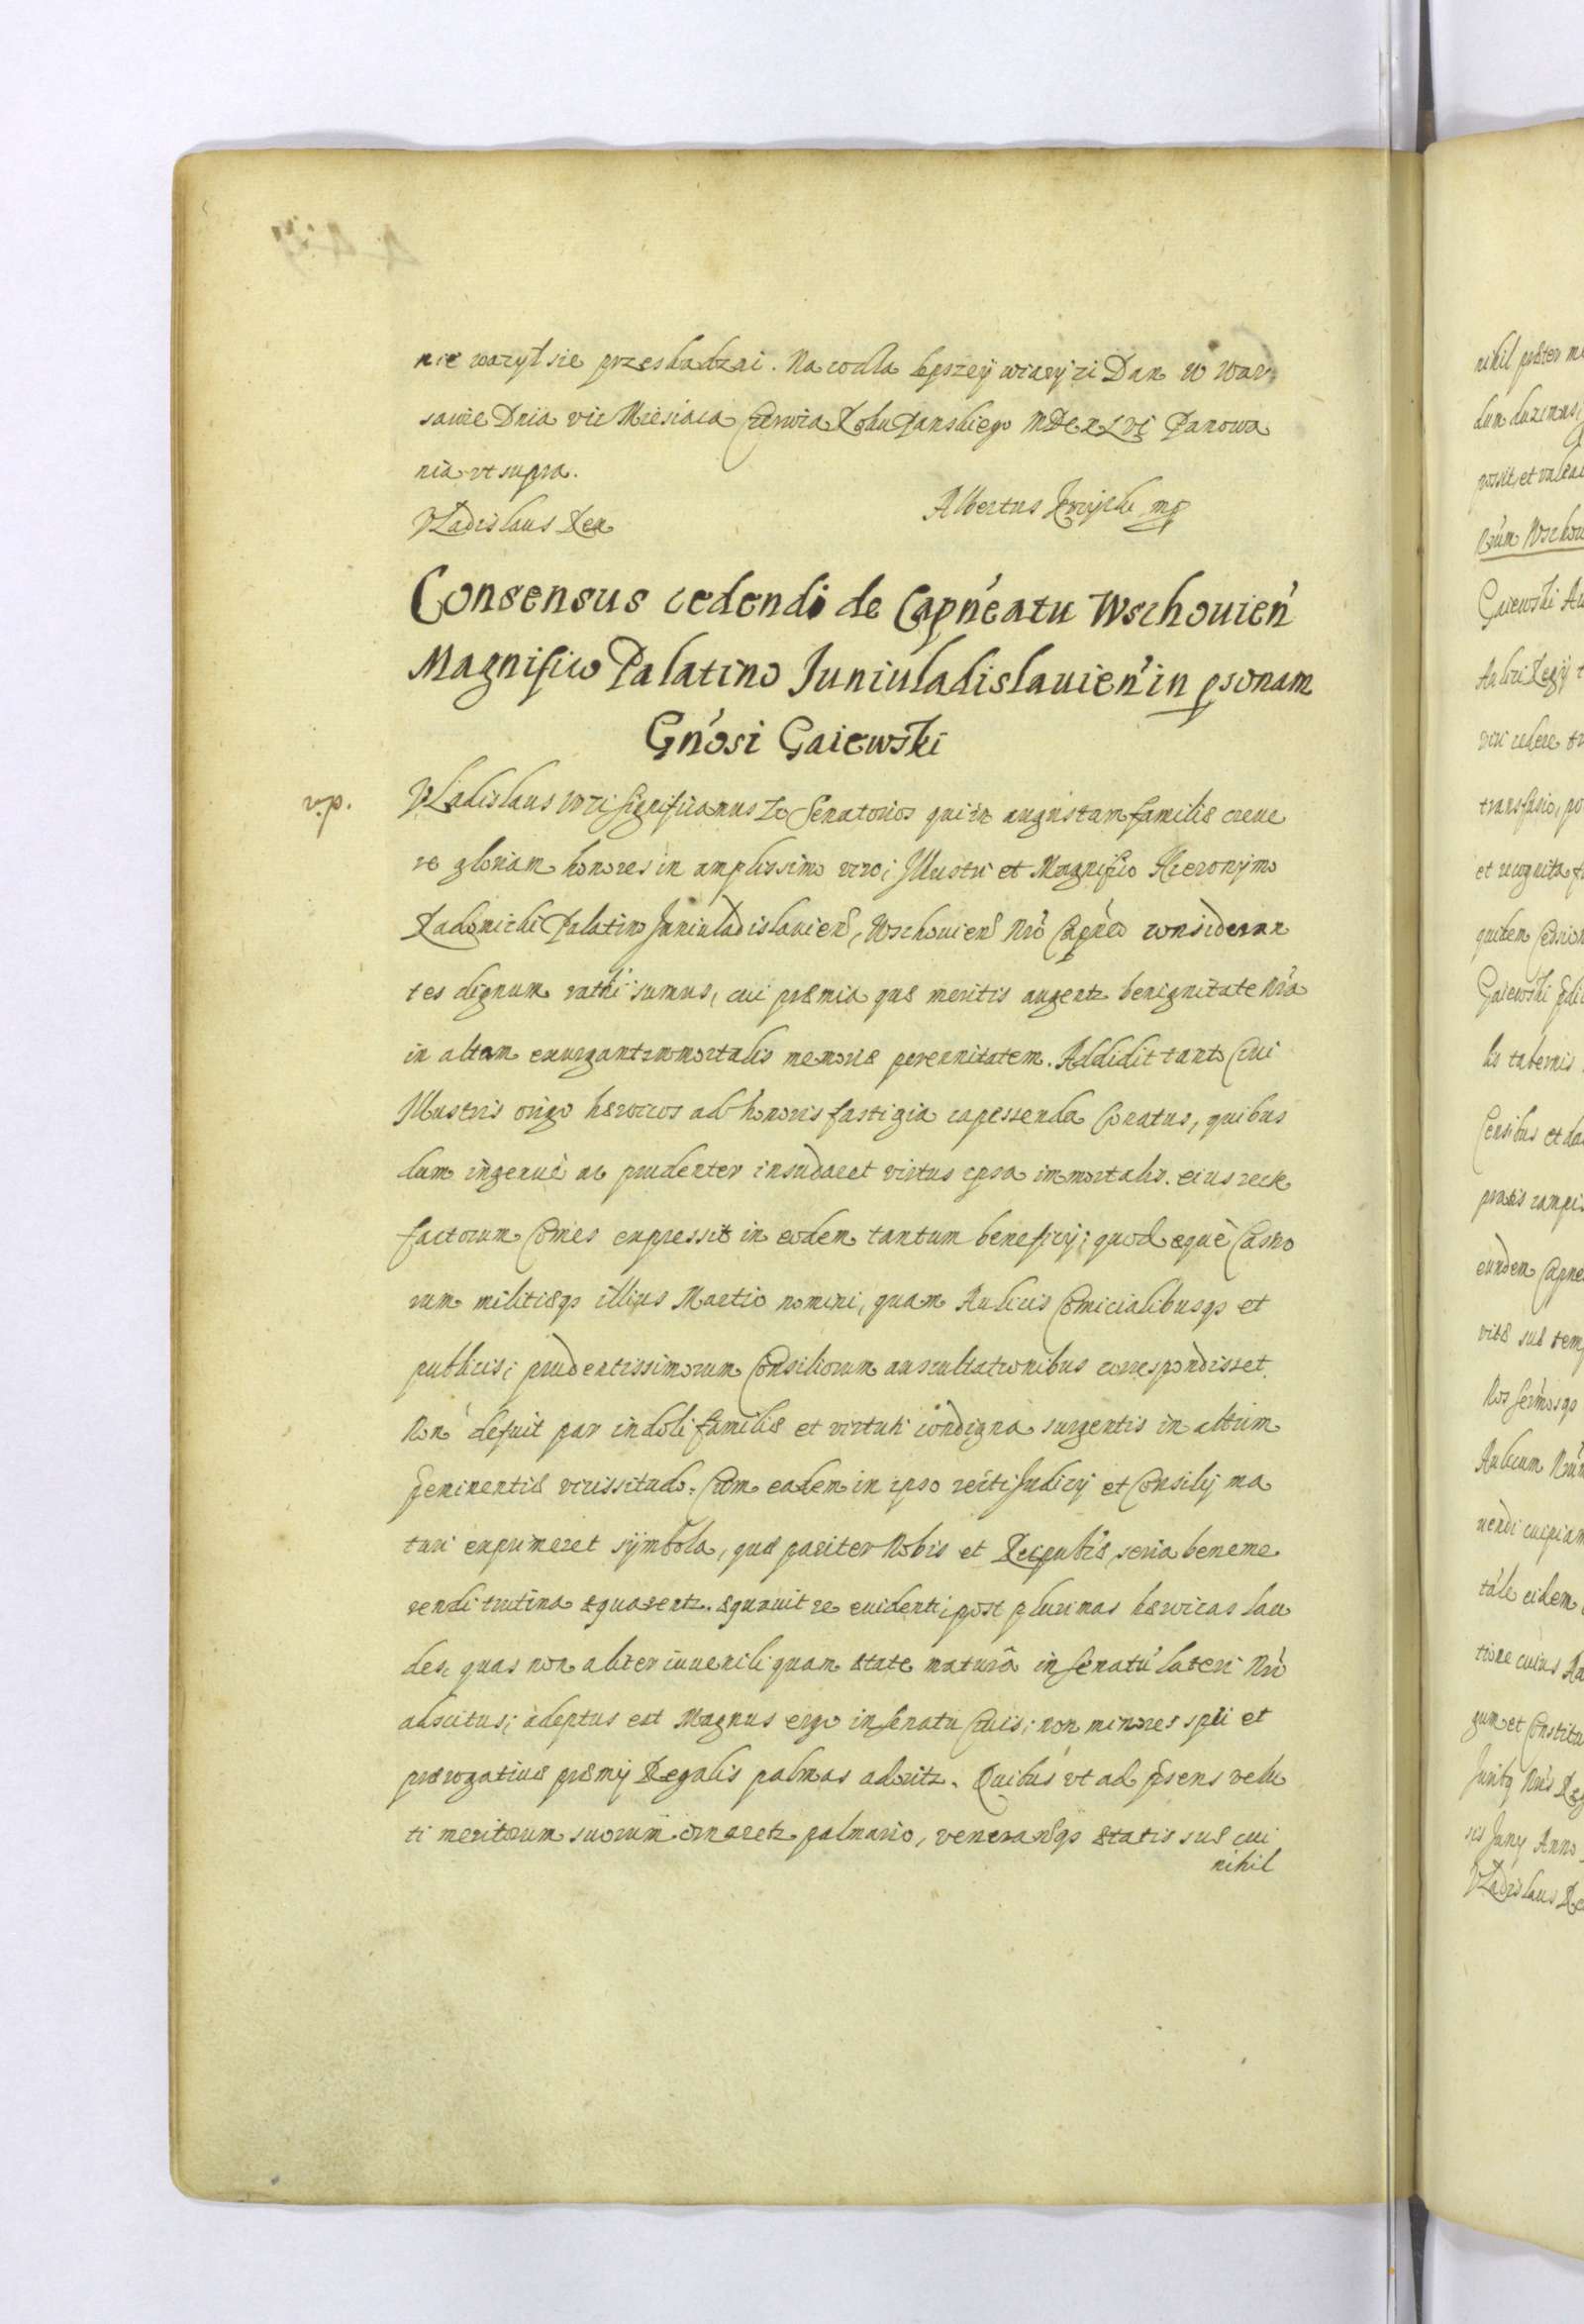 nie ważył sie przeskadzai. Na co dla lepszeÿ wiary zi Dan w War
sawie Dnia vii Miesiaca Czerwca Roku Panskiego MDCXLVI Panowa
nia vt supra.
Vladislaus Rex
Albertus mp
Consensus cedendi de Capn'eatu Wschouien'
Magnifico Palatino Juniuladislauien' in psonam
Gn'osi Gaiewski
v.p.
Vladislaus IV Significamus Senatorios qui in augustam familiæ creue
re gloriam honores in amplissimo viro; Illustri et Magnifico Hieronÿmo
Radomicki Palatino Juniuladislauien, Wschouien Nrō Capn'eo consideran
tes dignum rathi sumus, cui præmia quæ meritis augent benignitate Nr'a
in altam exurgant immortalis memoriæ perennitatem. Addidit tanto Ciui
Illustris origo hæroicos ad honoris fastigia capessenda Conatus, quibus
dum ingenuè ac prudenter insudaret virtus ipsa immortalis. eius recte
factorum Comes expressit in eodem tantum beneficij; quod æquè Castro
rum militiæqs illius Martio nomini, quam Aulicis Comicialibusqs et
publicis; prudentissimorum Consiliorum auscultationibus correspondisset.
Non defuit par indoli familiæ et virtuti condigna surgentis in altum
peminentiæ vicissitudo. Cum eadem in ipso recti Judicij et Consilij ma
turi exprimeret sÿmbola, quæ pariter Nobis et Reipublæ, seria beneme
rendi trutina æquarent. æquauit re euidenti post plurimas hæroicas lau
des, quas non aliter iuuenili quam ætate maturâ in Senatu lateri Nrō
adscitus; adeptus est Magnus ergo in Senatu Ciuis; non minores spei et
prærogatiuæ præmij Regalis palmas adoritr. Quibus vt ad psens velu
ti meritorum suorum ornaretr palmario, venerandæqs ætatis suæ cui
nihil
nihil præter m
dum ducimus,
possit, et valea
Nrūm Wschou
Gaiewski Au
Aulici Regij
viui cedere
transfusio, po
et recognita
quidem Cession
Gaiewski
lis tabernis
Censibus et da
pratis campis
eundem Capne
vitæ suæ temp
Nos Sermosqs
Aulicum Nrūm
uendi cuipiam
tale eidem
tione cuius
gum et Constitu
Juribq Nris Reg
sis Junij Anno
Vladislaus Re